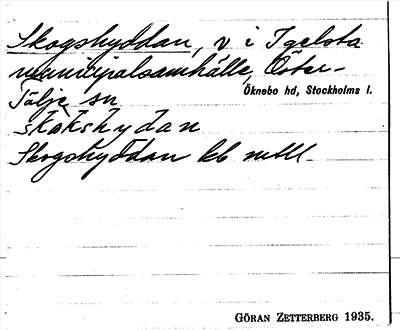 Skogshyddan, v i Igelsta
municipalsamhälle, Öster-
Tälje sn
Öknebo hd, Stockholms l.
skåkshydan
Skogshyddan lb mtll.
GÖRAN ZETTERBERG 1935.